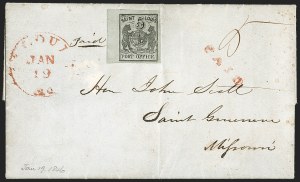 ST. LOUIS
JAN
19
Paid
SAINT LOUIS
POST OFFICE
PAID
5
Hon John Scott
Saint Genevieve
Missouri
Jan 19, 1846